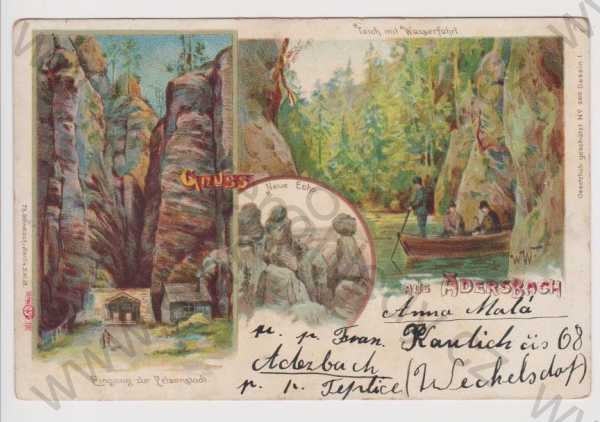 Teich mit Wasserfahrt
Gruss
Neue Echo
aus Adersbach
W.W.
Eingang zur Felsenstadt
Gesetzlich geschützt NY 200 Dessin 1
Anna Malá
p. p. Fran. Kaulich čís 68
Aderbach
p. p. Teplice (Weckelsdorf)